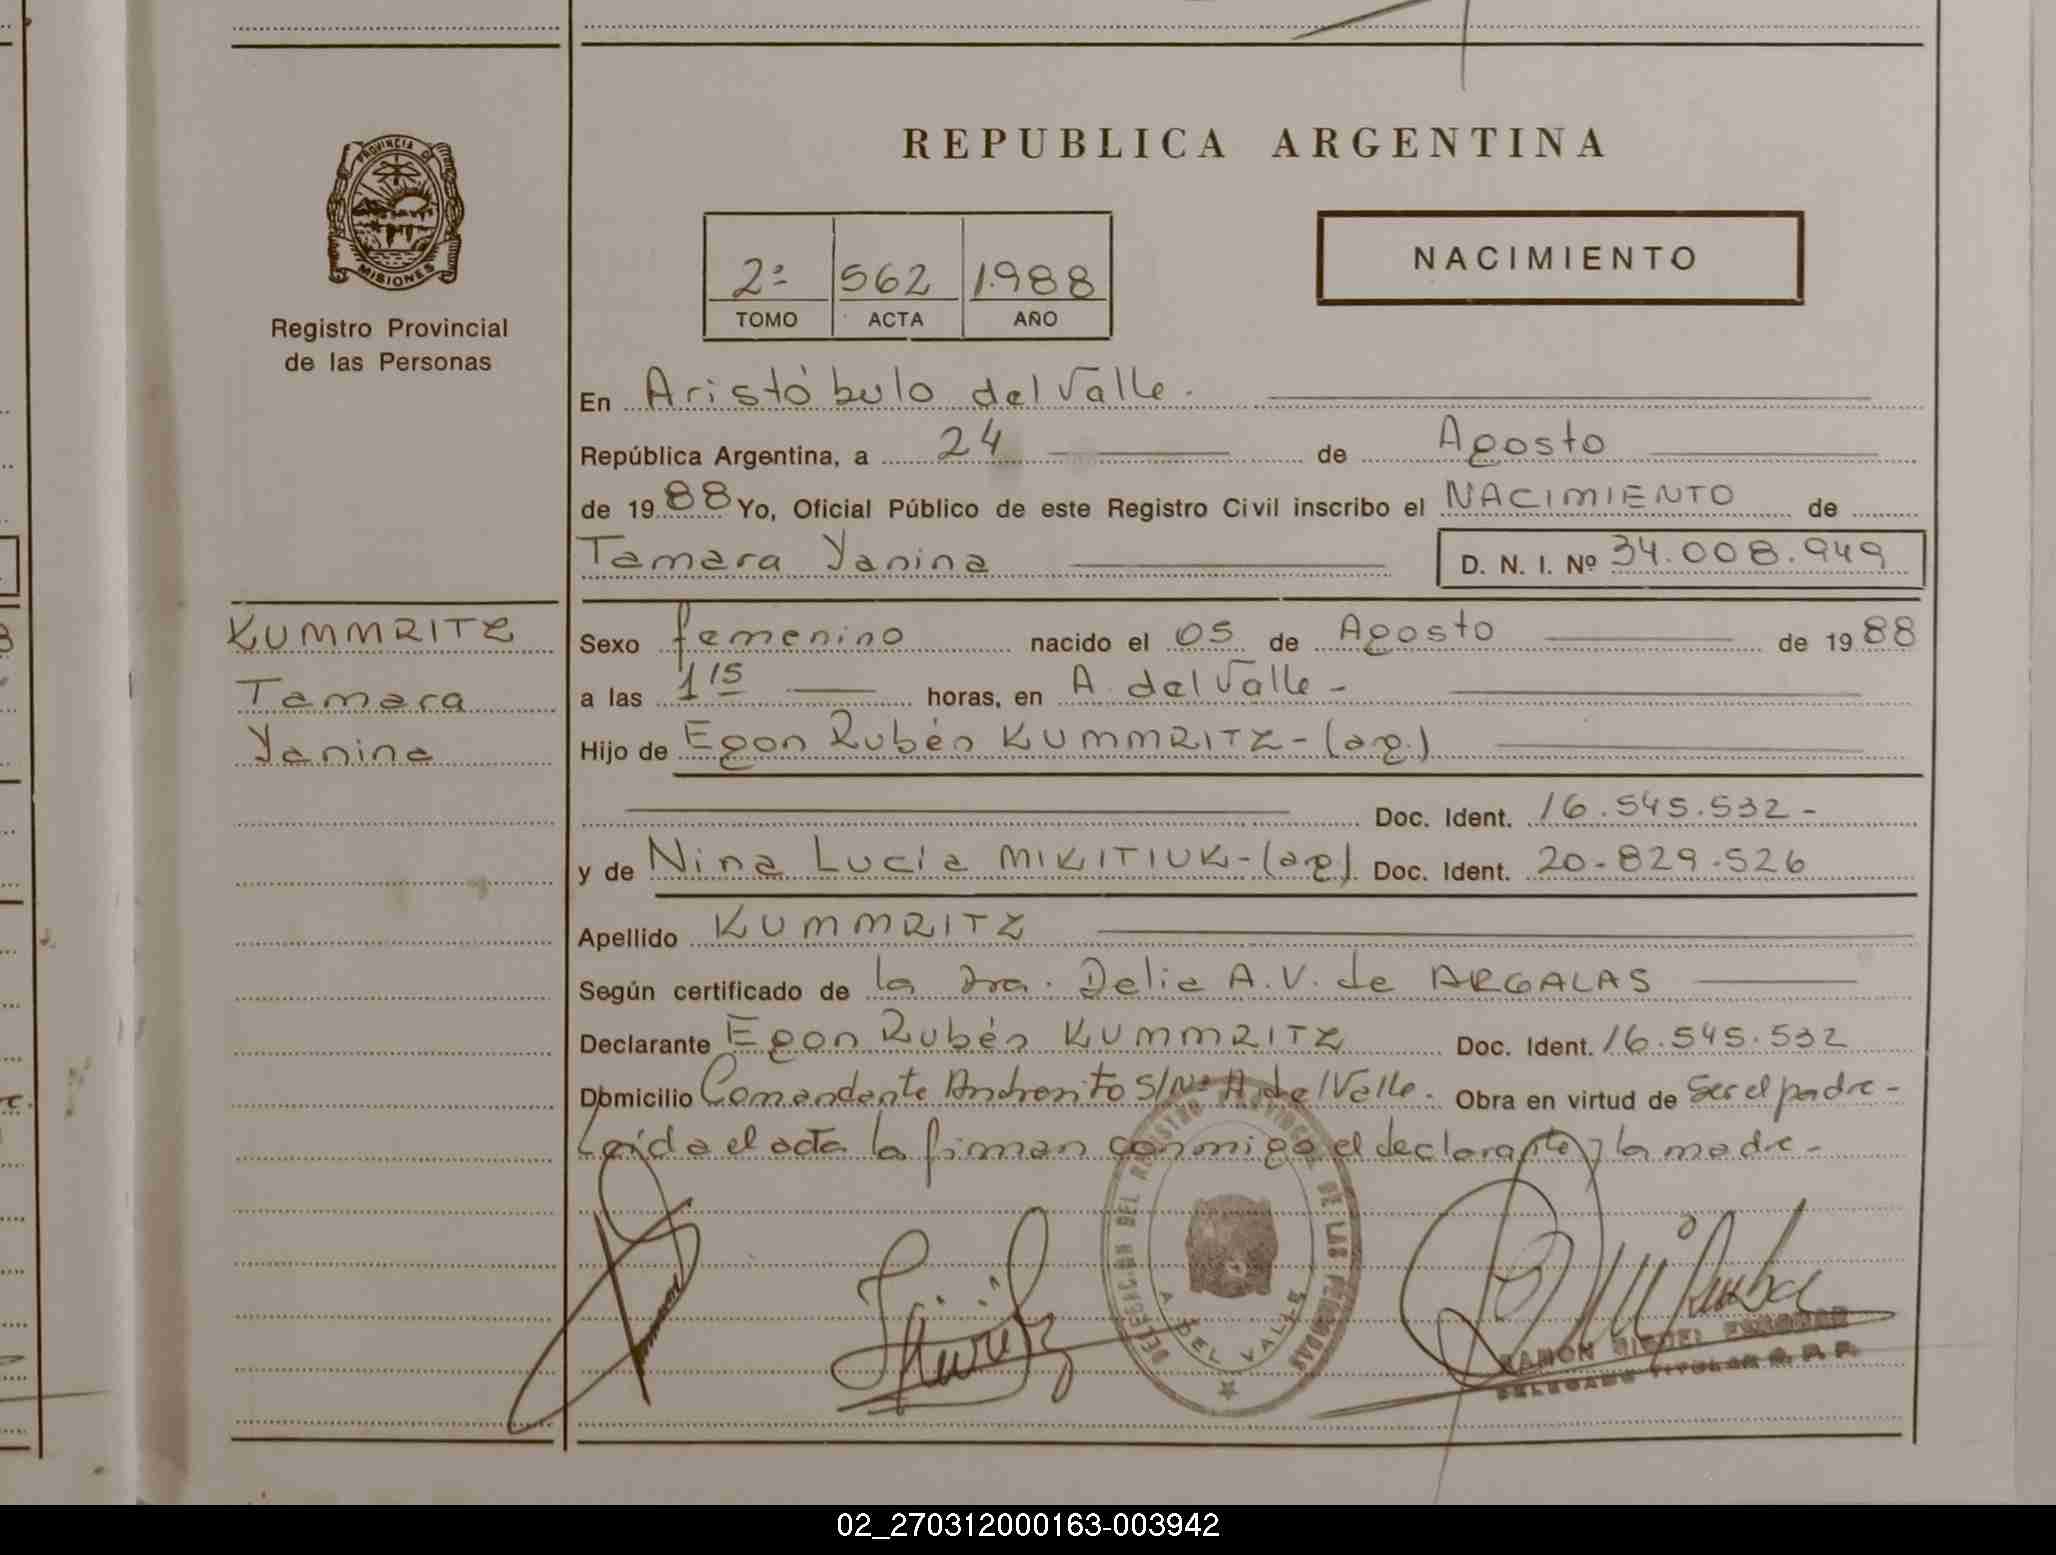 PROVINCIA DE
MISIONES
Registro Provincial
de las Personas
KUMMRITZ
Tamara
Yanina
REPUBLICA ARGENTINA
2º 562 1.988
TOMO ACTA AÑO
NACIMIENTO
En Aristóbulo del Valle.
República Argentina, a 24 de Agosto
de 1988 Yo, Oficial Público de este Registro Civil inscribo el NACIMIENTO de
Tamara Yanina D. N. I. Nº 34.008.949
Sexo femenino nacido el 05 de Agosto de 1988
a las 1 15 horas, en A. del Valle -
Hijo de Egon Rubén KUMMRITZ - (arg.)
Doc. Ident. 16.545.532 -
y de Nina Lucía MIKITIUK - (arg). Doc. Ident. 20-829.526
Apellido KUMMRITZ
Según certificado de la Dra. Delia A.V. de ARGALAS
Declarante Egon Rubén KUMMRITZ Doc. Ident. 16.545.532
Domicilio Comandante Andresito S/Nº A del Valle. Obra en virtud de Ser el padre -
Leída el acta la firman conmigo el declarante y la madre -
DELEGACION DEL REGISTRO PROVINCIAL DE LAS PERSONAS
A. DEL VALLE
RAMON MIGUEL
DELEGADO TITULAR R. P. P.
02_270312000163-003942